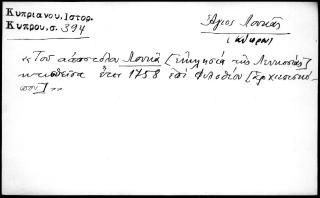 Κυπριανου, Ιστορ.
Κυπρου, σ. 394
Ἅγιος Λουκᾶς
(Κύπρου)
«Τοῦ ἀποστόλου Λουκᾶ [ἐκκλησία τῆς Λευκωσίας]
κτισθεῖσα ἔτει 1758 ἐπὶ Φιλοθέου [ἀρχιεπισκό-
που] »